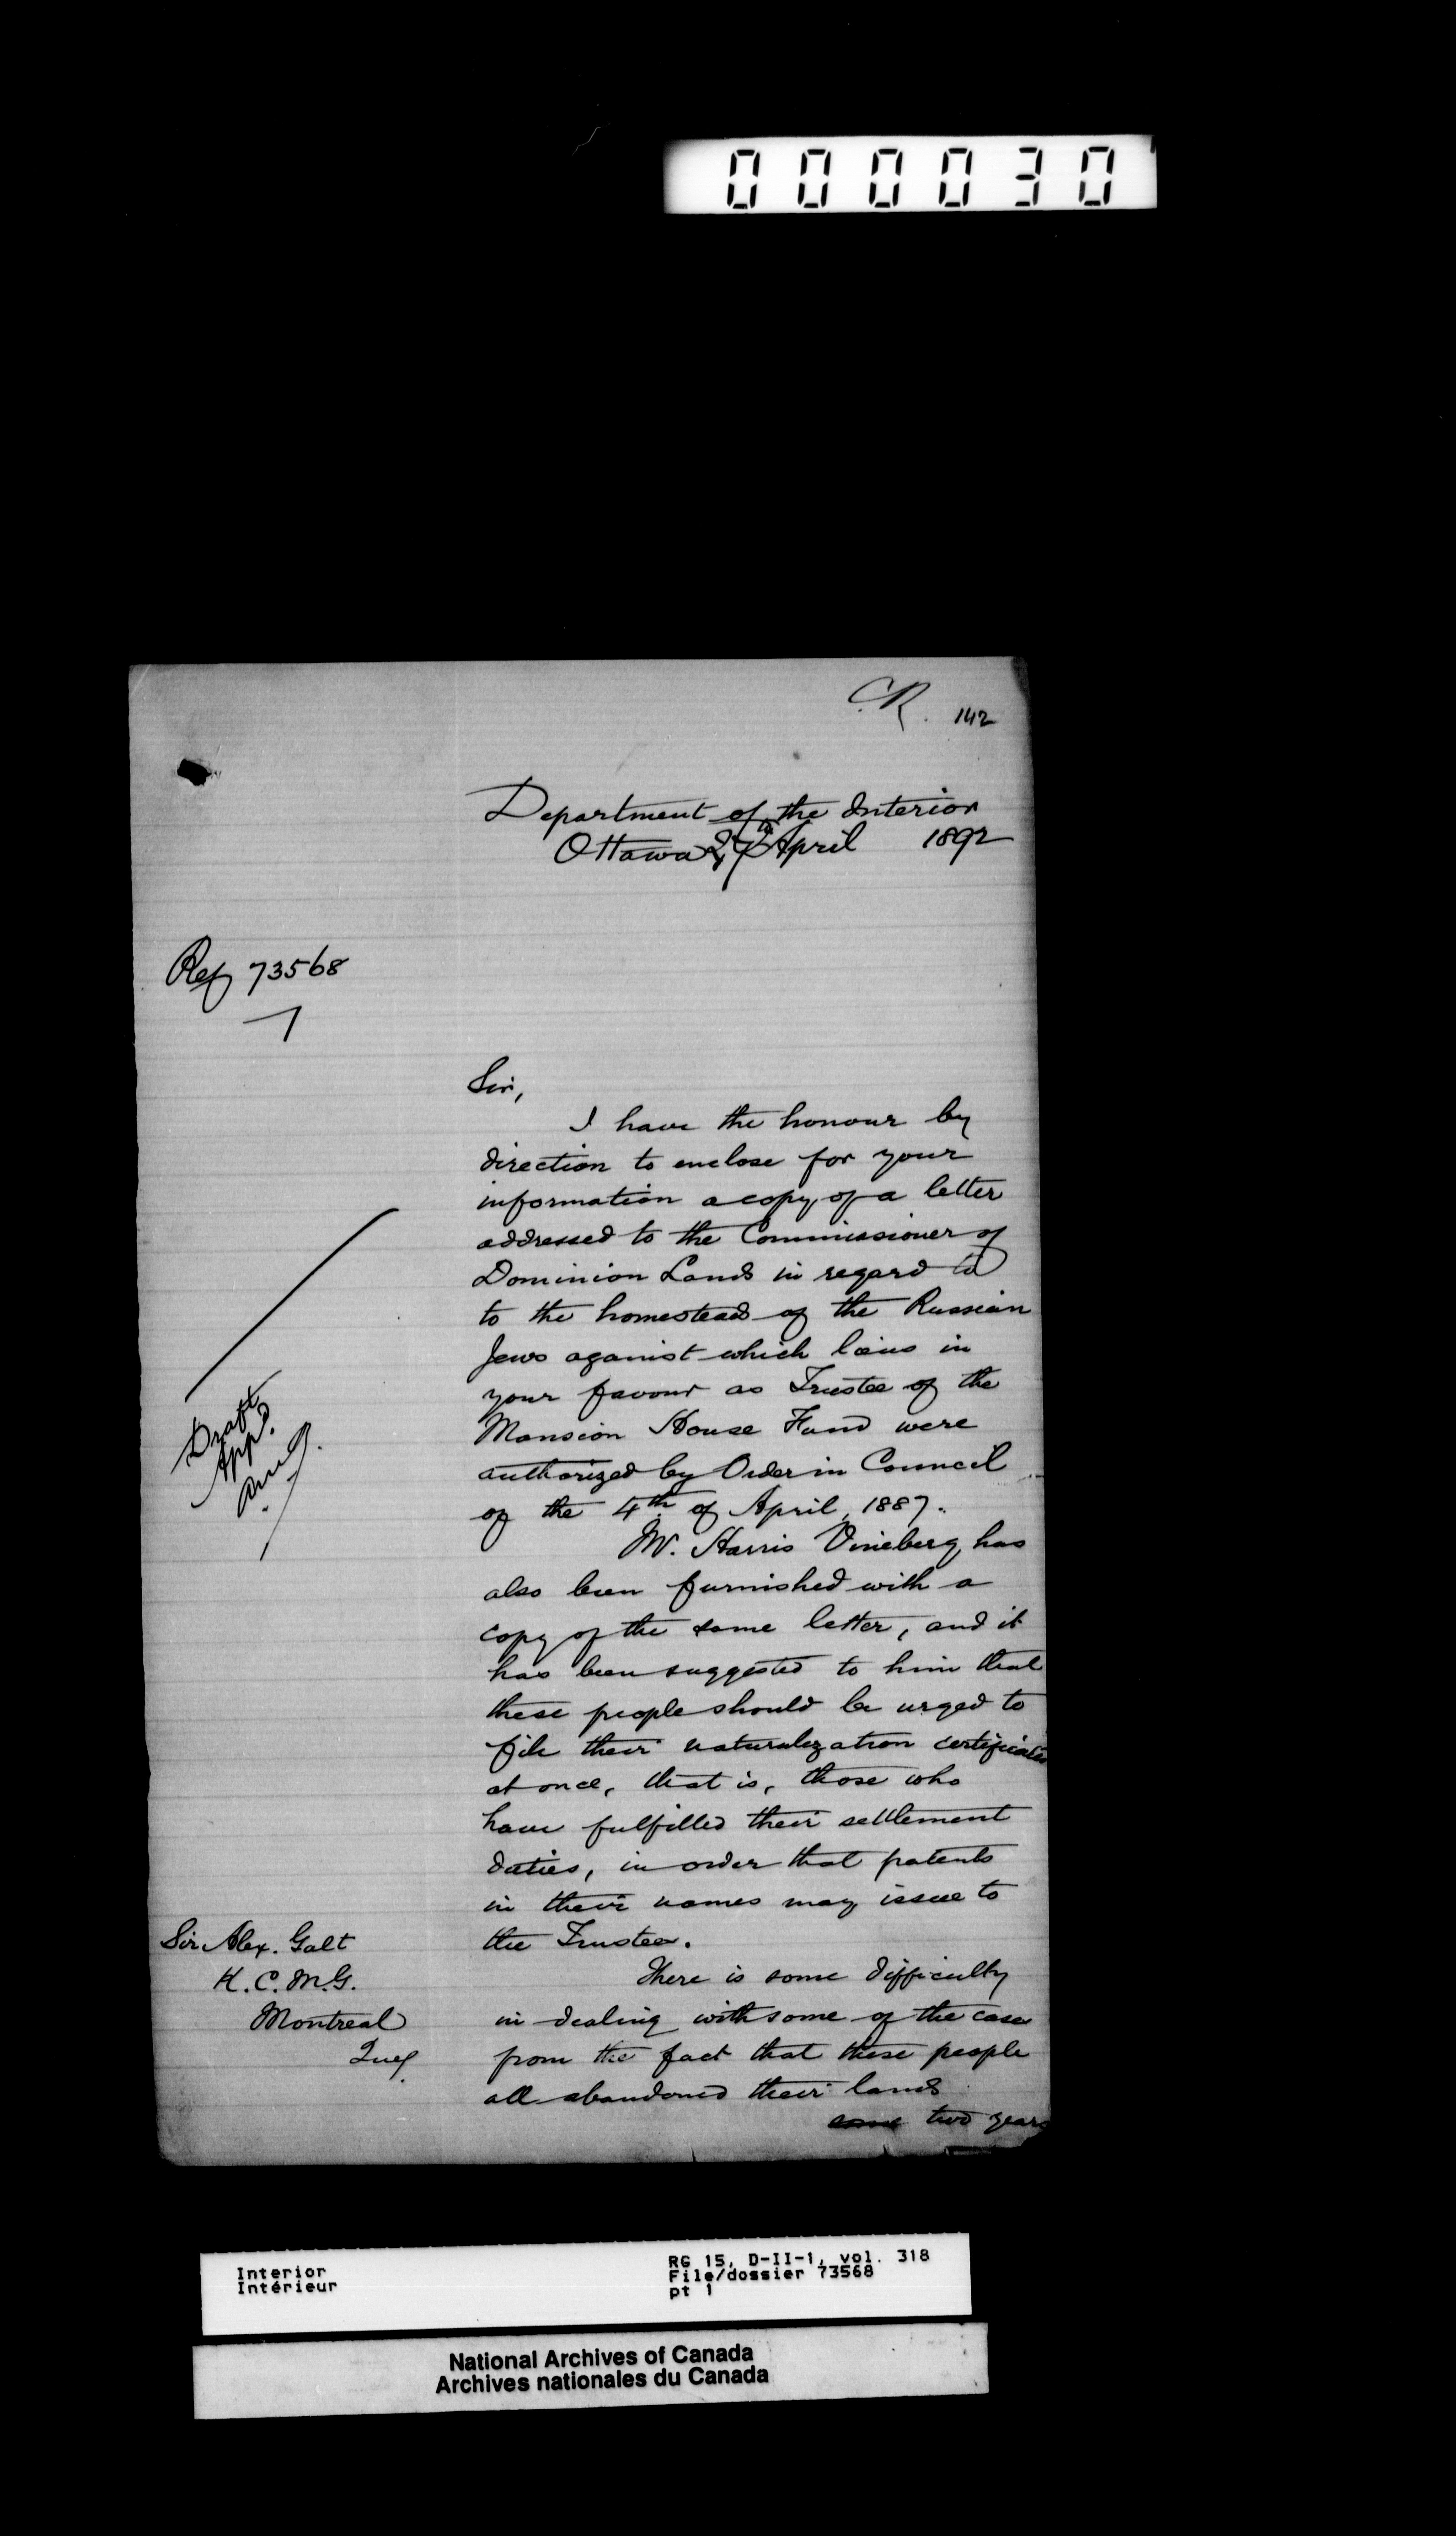 000030
CR. 142
Department of the Interior
Ottawa 27th April 1892
Ref 73568
1
Sir,
I have the honour by
direction to enclose for your
information a copy of a letter
addressed to the Commissioner of
Dominion Lands in regard to
to the homesteads of the Russian
Jews against which liens in
your favour as Trustee of the
Mansion House Fund were
authorized by Order in Council
of the 4th of April, 1887.
Mr. Harris Vineberg has
also been furnished with a
copy of the same letter, and it
has been suggested to him that
these people should be urged to
file their naturalization certificates
at once, that is, those who
have fulfilled their settlement
duties, in order that patents
in their names may issue to
the Trustee.
There is some difficulty
in dealing with some of the cases
from the fact that these people
all abandoned their lands
some two years
Draft
App.d
Sir Alex. Galt
K.C.M.G.
Montreal
Que.
Interior
Intérieur
RG 15, D-II-1, vol. 318
File/dossier 73568
pt 1
National Archives of Canada
Archives nationales du Canada